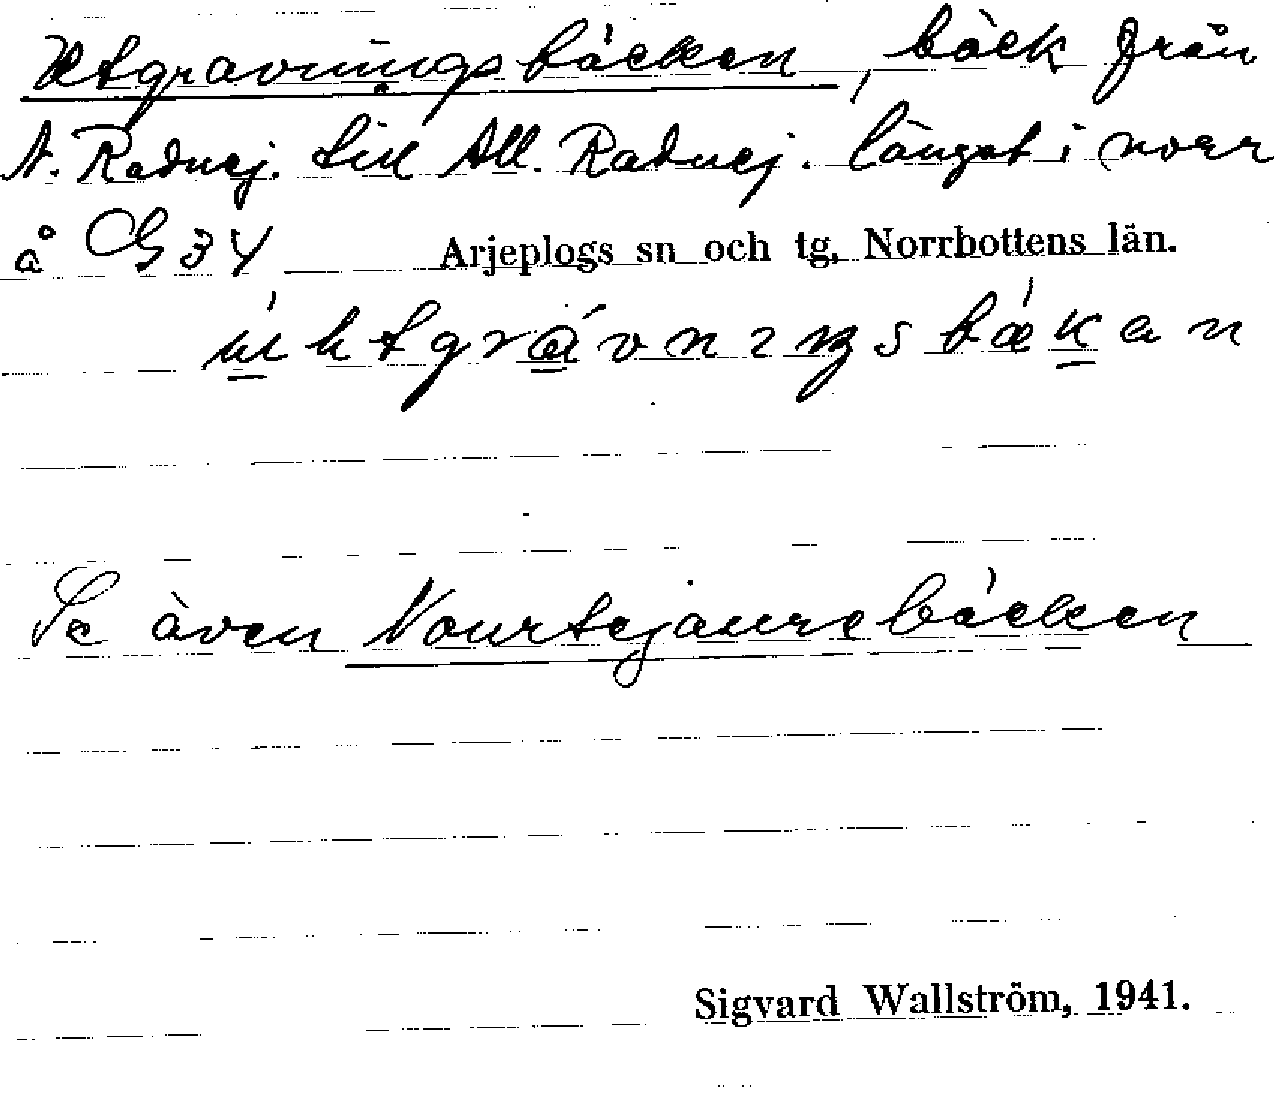 Utgravningsbäcken, bäck från
N. Radnej. till All. Radnej. längst i norr
å G 34 Arjeplogs sn och tg, Norrbottens län.
Se även Vourtejaurebäcken
Sigvard Wallström, 1941.